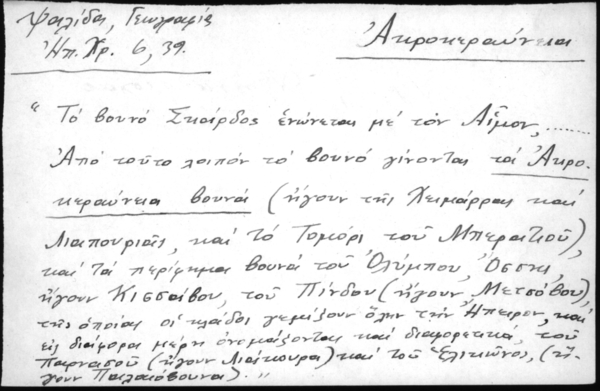 Ψαλίδα, Γεωγραφία
Ἠπ. Χρ. 6, 39.
Ἀκροκεραύνεια
"Τό βουνό Σκάρδος ἑνώνεται μέ τόν Αἷμον, ........
Ἀπό τοῦτο λοιπόν τό βουνό γίνονται τά Ἀκρο-
κεραύνεια βουνά (ἤγουν τῆς Χειμάρρας καί
Λιαπουριᾶς, καί τό Τομόρι τοῦ Μπερατιοῦ),
καί τά περίφημα βουνά τοῦ Ὀλύμπου, Ὄσσης,
ἤγουν Κισσάβου, τοῦ Πίνδου (ἤγουν Μετσόβου),
τῆς ὁποίας οἱ κλάδοι γεμίζουν ὅλην τήν Ἤπειρον, καί
εἰς διάφορα μέρη ὀνομάζονται καί διαφορετικά, τοῦ
Παρνασοῦ (ἤγουν Λιάκουρα) καί τοῦ Ἑλικῶνος, (ἤ-
γουν Παλαιόβουνα)."